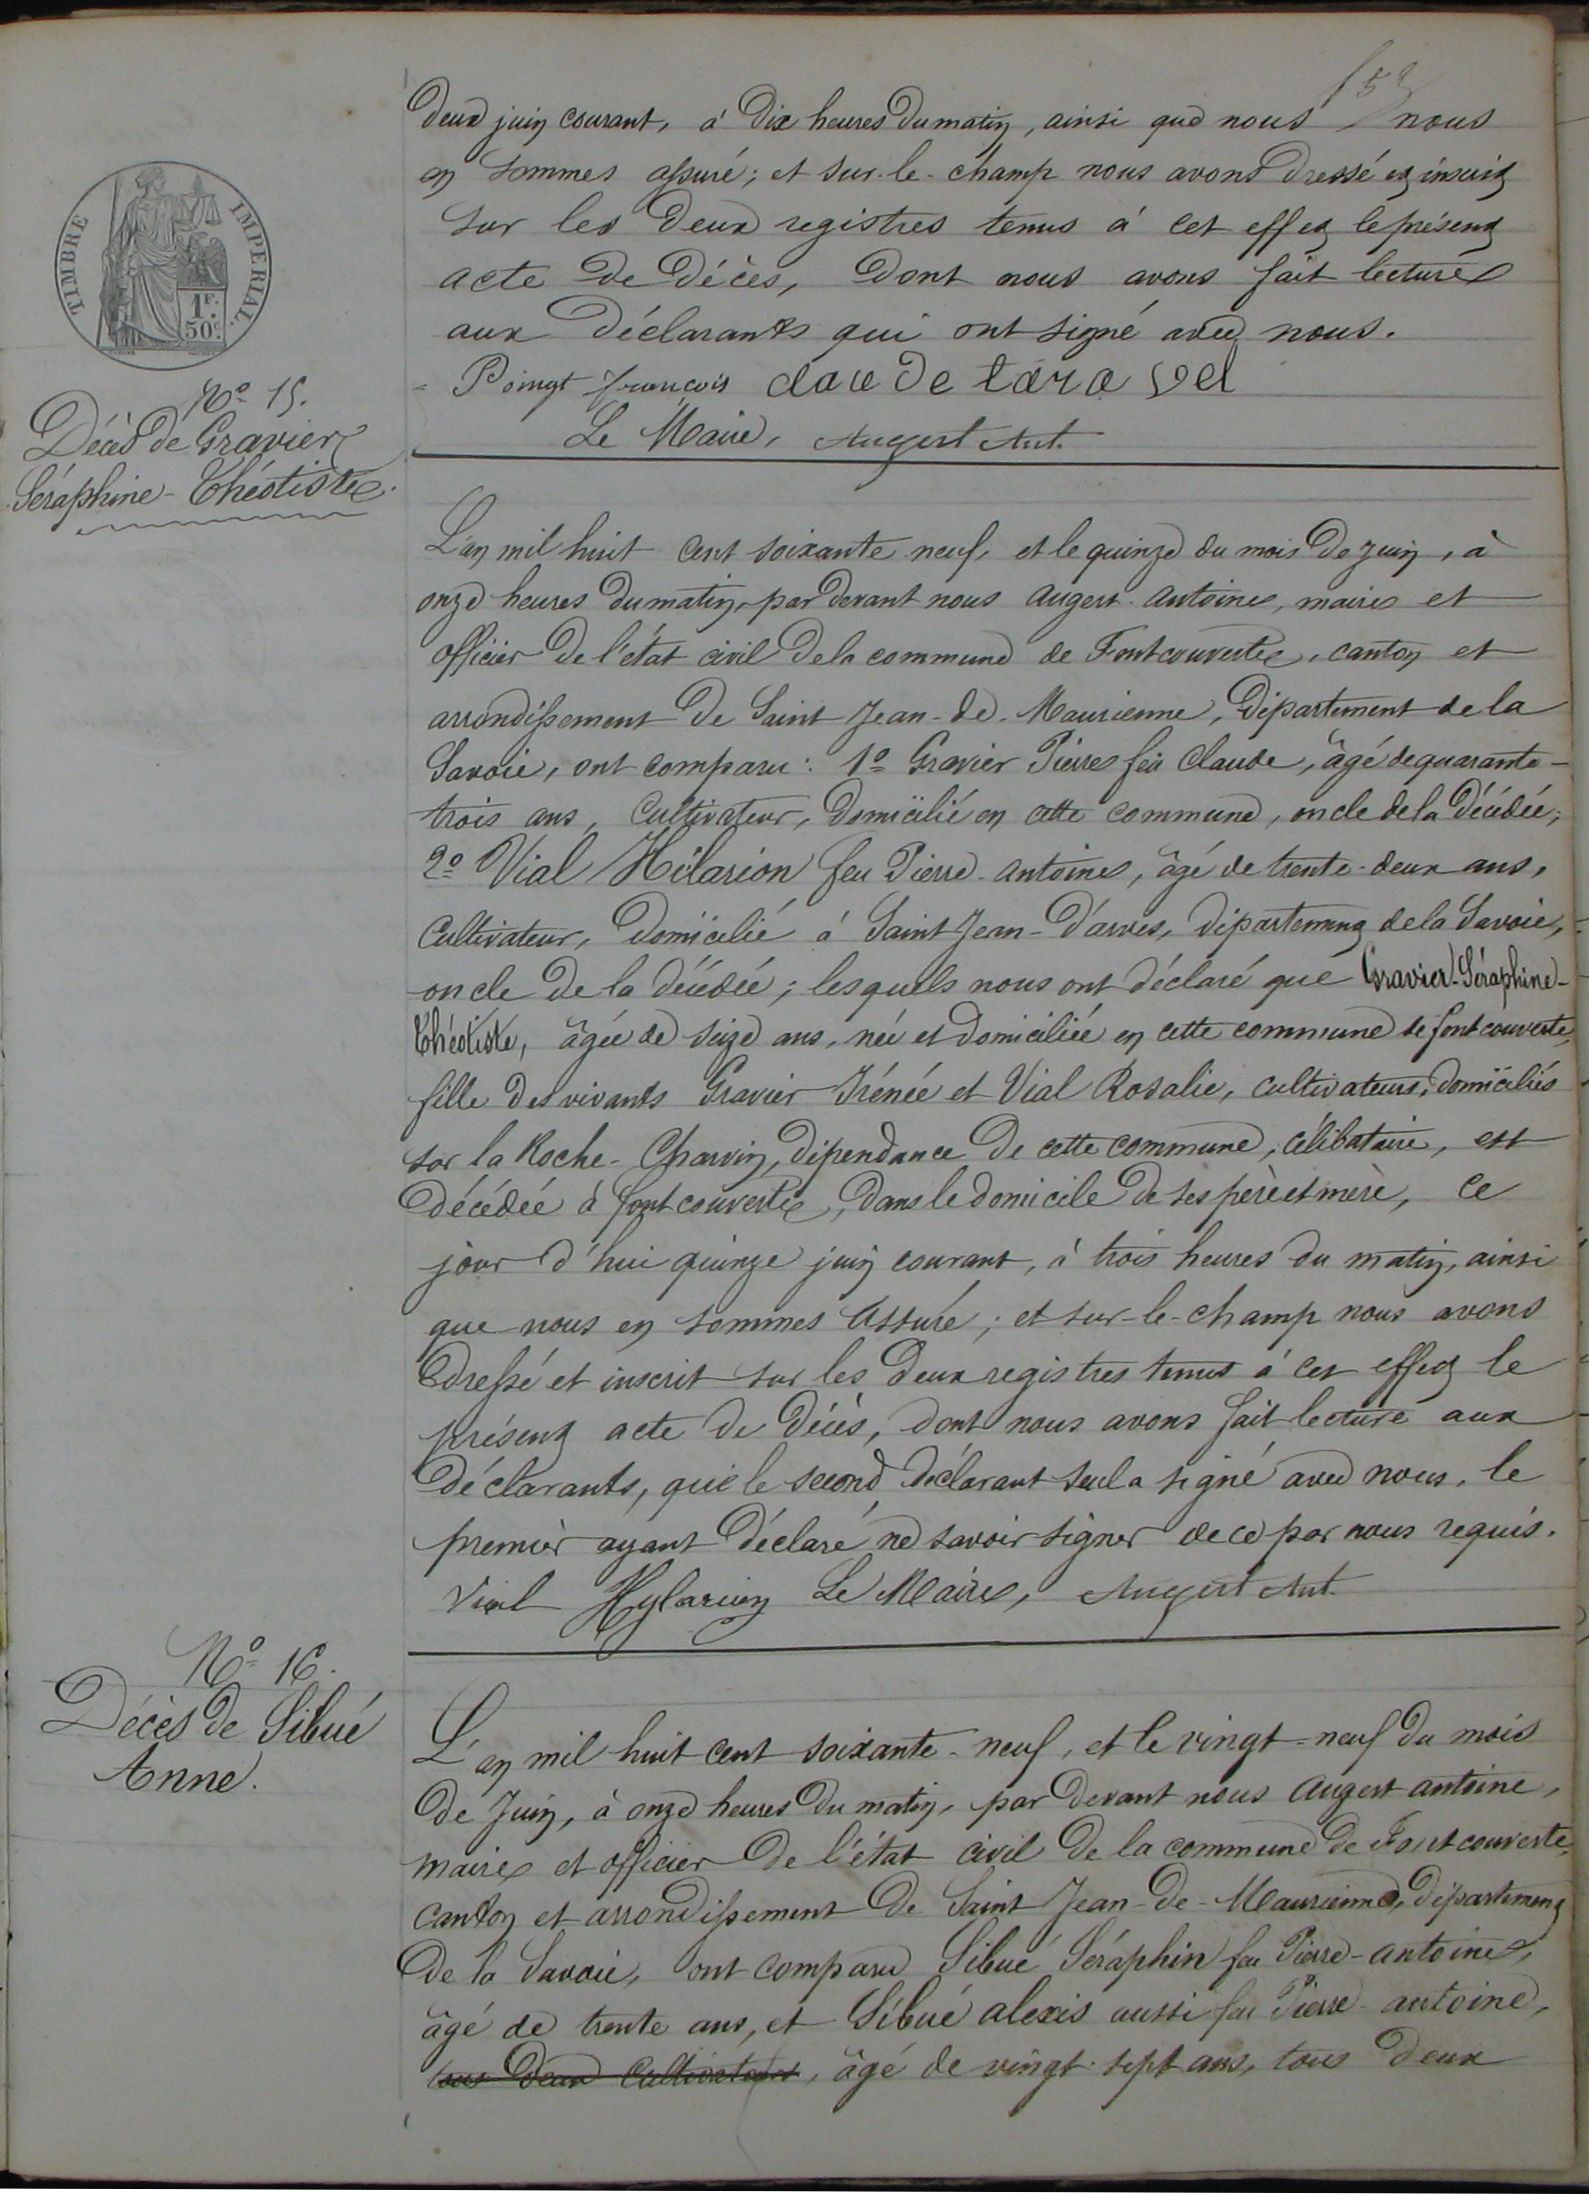 deux juin courant, à dix heures du matin, ainsi que nous nous
en sommes assuré; et sur-le-champ nous avons dressé et inscrit
sur les deux registres tenus à cet effet le présent
acte de décès, dont nous avons fait lecture
aux déclarants qui ont signé avec nous.
Poingt françois claude taravel
Le Maire, Augert Ant.
TIMBRE IMPERIAL.
1F. 50C.
No 15.
Décès de Gravier
Séraphine-Théotiste.
L'an mil huit cent soixante neuf, et le quinze du mois de juin, à
onze heures du matin, par devant nous Augert Antoine, maire et
officier de l'état civil de la commune de Fontcouverte, canton et
arrondissement de Saint Jean-de-Maurienne, Département de la
Savoie, ont comparu: 1o Gravier Pierre feu Claude, âgé de quarante-
trois ans, cultivateur, domicilié en cette commune, oncle de la décédée;
2o Vial Hilarion feu Pierre-antoine, âgé de trente-deux ans,
cultivateur, domicilié à Saint Jean-d'arves, département de la Savoie,
oncle de la décédée; lesquels nous ont déclaré que Gravier-Séraphine-
Théotiste, âgée de seize ans, née et domiciliée en cette commune de fontcouverte,
fille des vivants Gravier Irénée et Vial Rosalie, cultivateurs, domiciliés
sur la Roche-Charvin, dépendance de cette commune, célibataire, est
décédée à fontcouverte, dans le domicile de ses père et mère, ce
jour d'hui quinze juin courant, à trois heures du matin, ainsi
que nous en sommes assuré; et sur-le-champ nous avons
dressé et inscrit sur les deux registres tenus à cet effet le
présent acte de décès, dont nous avons fait lecture aux
déclarants, que le second déclarant seul a signé avec nous, le
premier ayant déclaré ne savoir signer de ce par nous requis.
Vial Hylarion Le Maire, Augert Ant.
No 16.
Décès de Sibué
Anne.
L'an mil huit cent soixante-neuf, et le vingt-neuf du mois
de Juin, à onze heures du matin, par devant nous Augert antoine,
maire et officier de l'état civil de la commune de Fontcouverte,
canton et arrondissement de Saint Jean-de-Maurienne, département
de la Savoie, ont comparu Sibué Séraphin feu Pierre-antoine,
âgé de trente ans, et Sibué alexis aussi feu Pierre-antoine,
tous deux cultivateurs, âgé de vingt-sept ans, tous deux